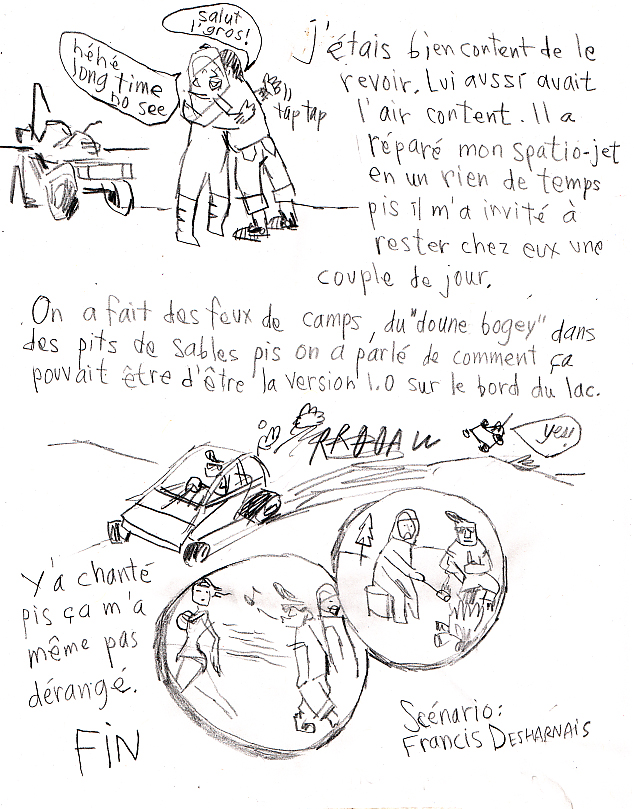 salut
l'gros!
héhé
long time
no see
tap tap
J'étais bien content de le
revoir. Lui aussi avait
l'air content. Il a
réparé mon spatio-jet
en un rien de temps
pis il m'a invité à
rester chez eux une
couple de jour.
On a fait des feux de camps, du "doune bogey" dans
des pits de sables pis on a parlé de comment ça
pouvait être d'être la version 1.0 sur le bord du lac.
yes!
Y'a chanté
pis ça m'a
même pas
dérangé.
FIN
Scénario:
Francis DESHARNAIS